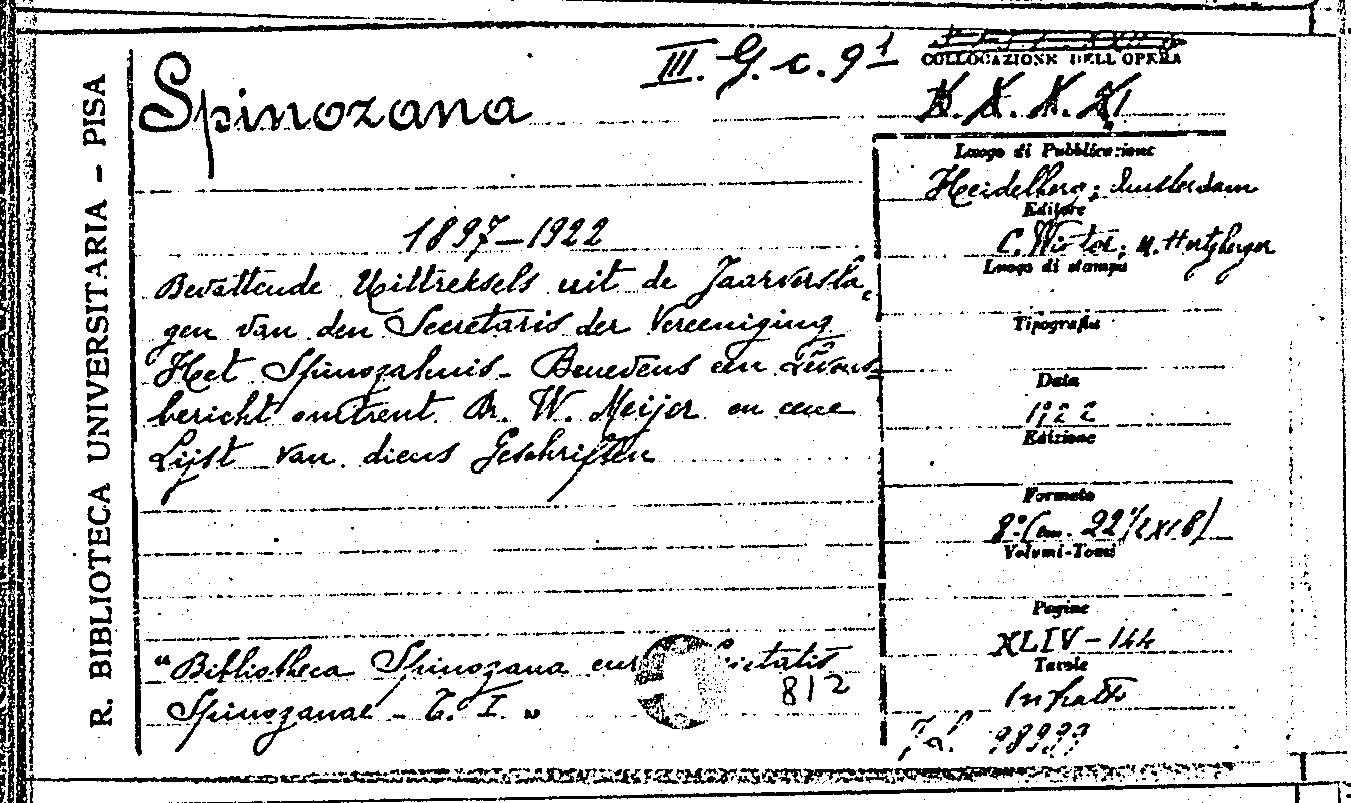 R. BIBLIOTECA UNIVERSITARIA – PISA
III. G. c. 9¹
COLLOCAZIONE DELL'OPERA
Spinozana
1897–1922
Bevattende Uittreksels uit de Jaarversla„
gen van den Secretaris der Vereeniging
Het Spinozahuis – Benevens een Levens„
bericht omtrent Dr. W. Meijer en eene
Lijst van diens Geschriften
"Bibliotheca Spinozana cur
Spinozanae – T. I. „
812
Luogo di Pubblicazione
Heidelberg; Amsterdam
Editore
C. Winter; M. Hertzberger
Luogo di stampa
Tipografia
Data
1922
Edizione
Formato
8° (cm. 22½x18)
Volumi-Tomi
Pagine
XLIV – 144
Tavole
1 ritratto